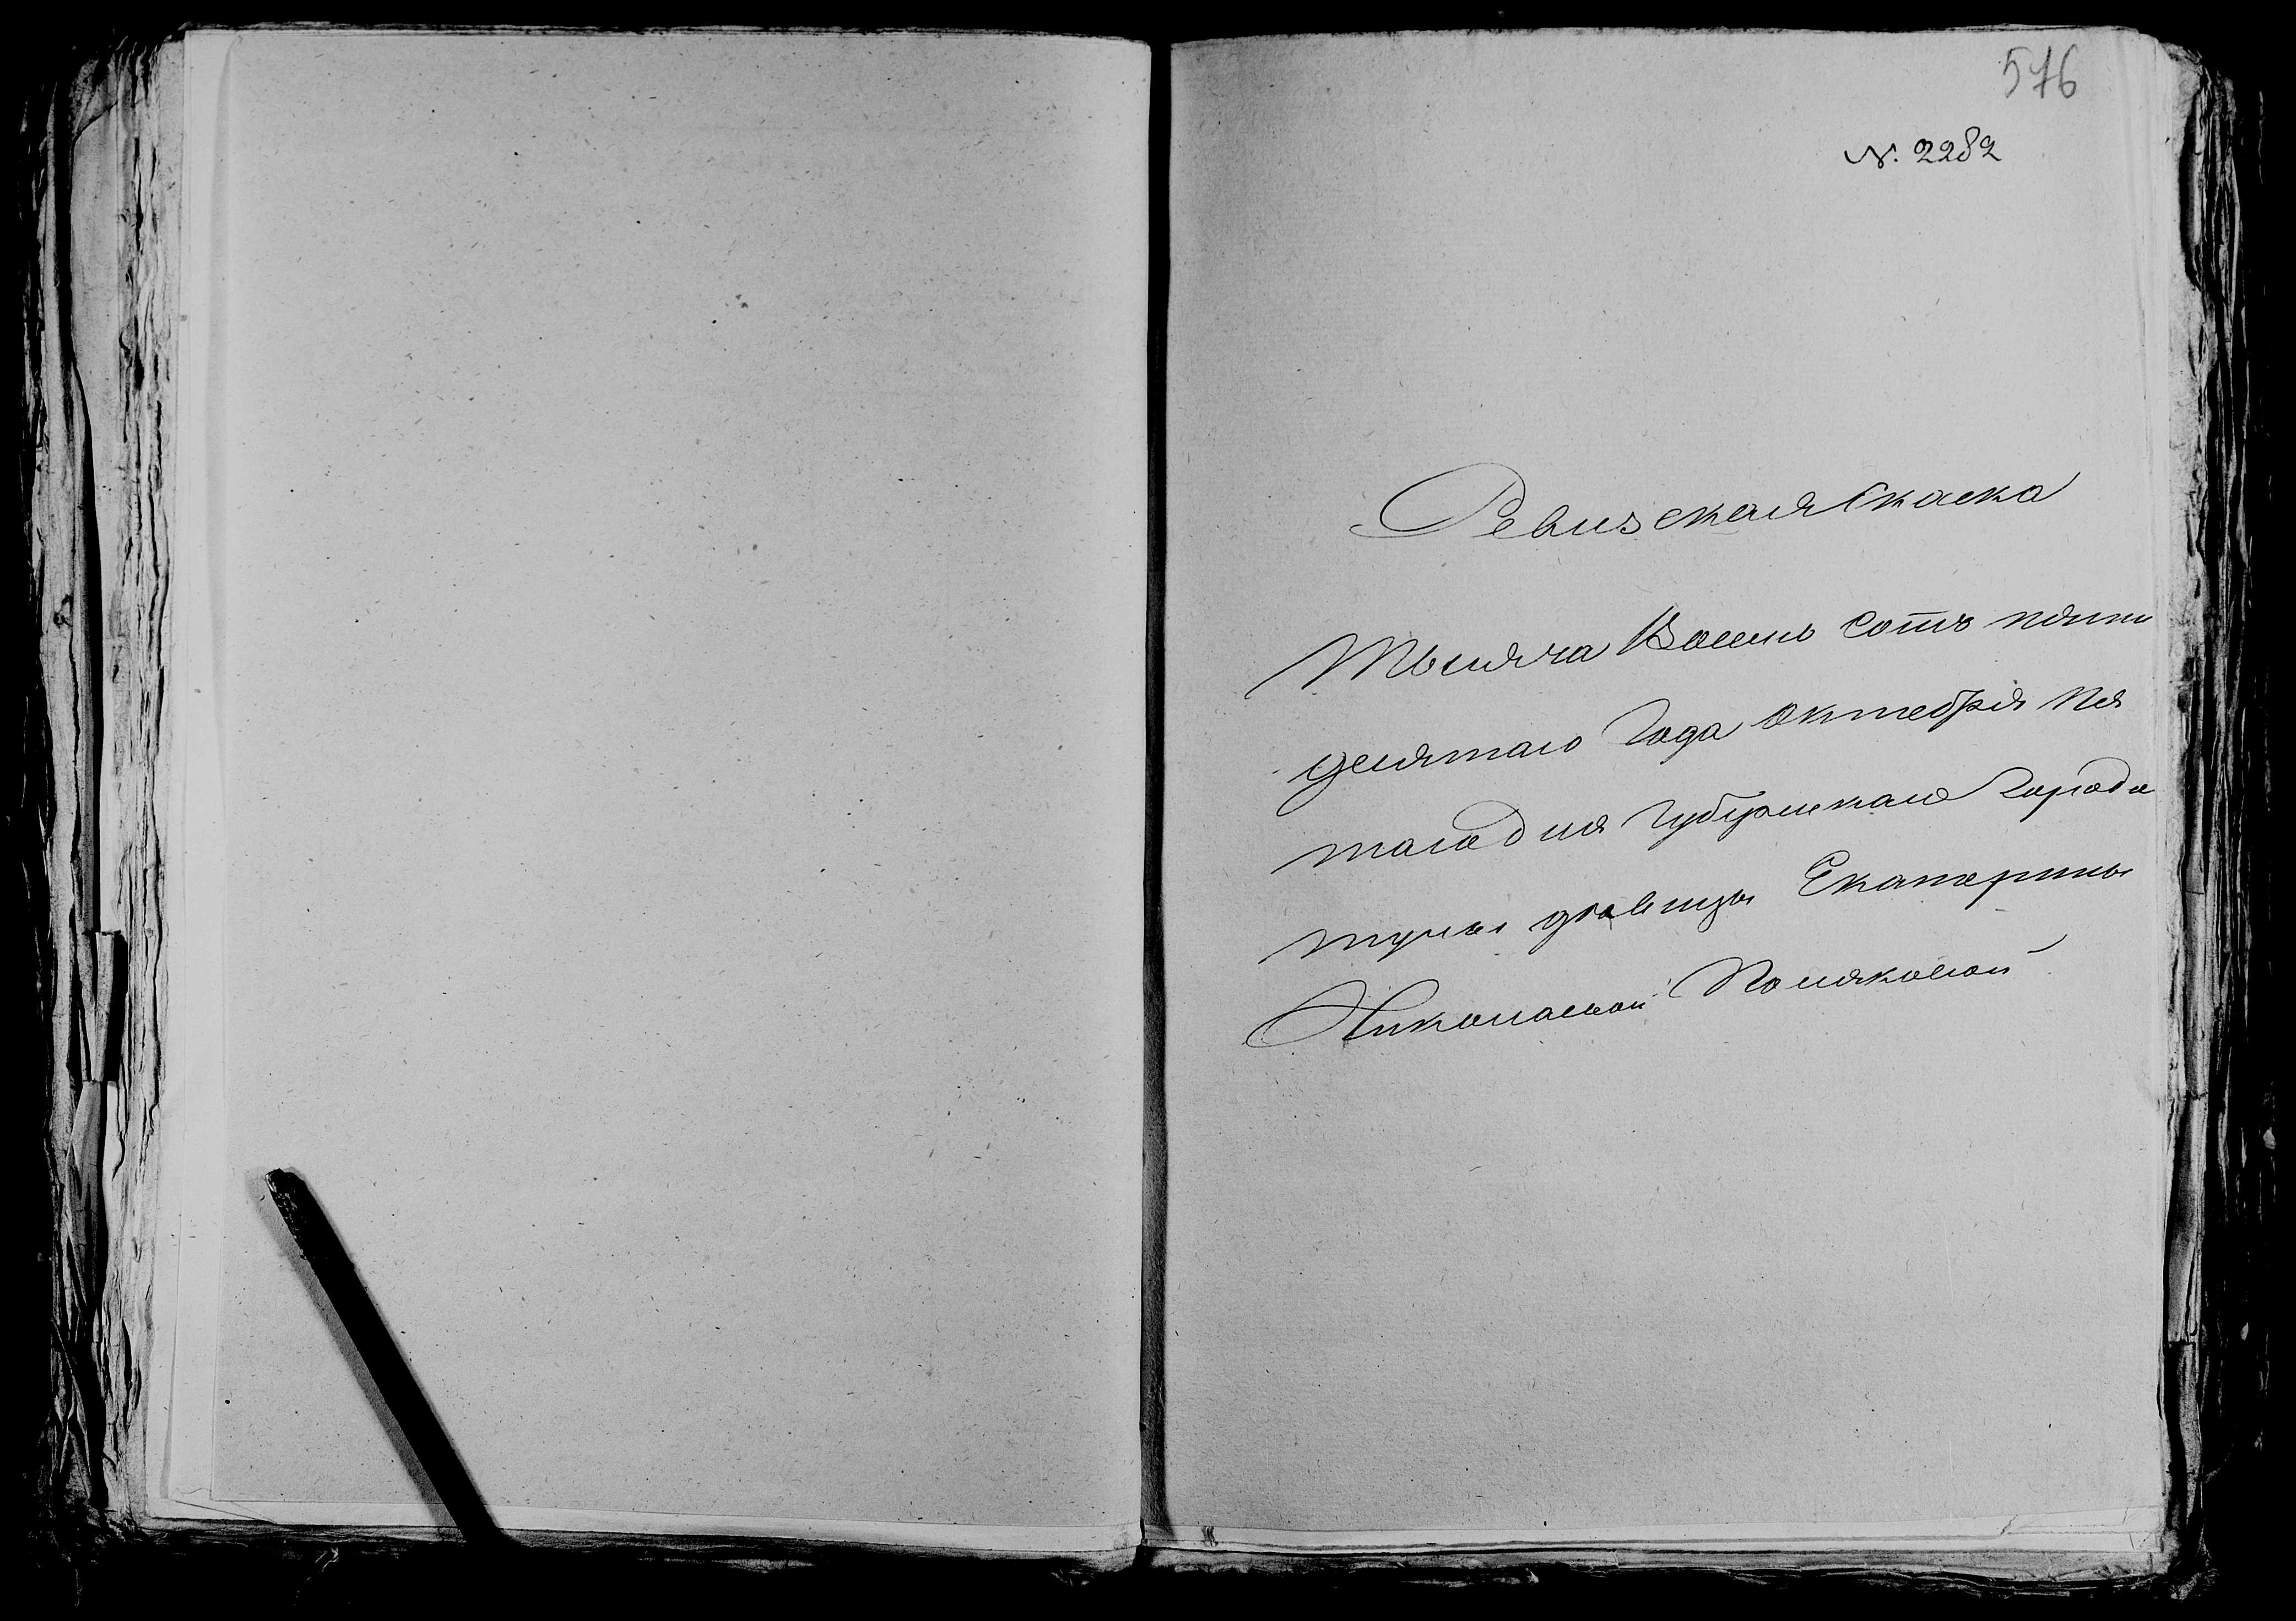 576
№. 2282
Ревизская Скаска
Тысяча Восемь Сотъ пяти
десятаго Года Октебря Пя
таго дня Губернскаго Города
тулы девицы Екатерины
Николаевой Поляковой